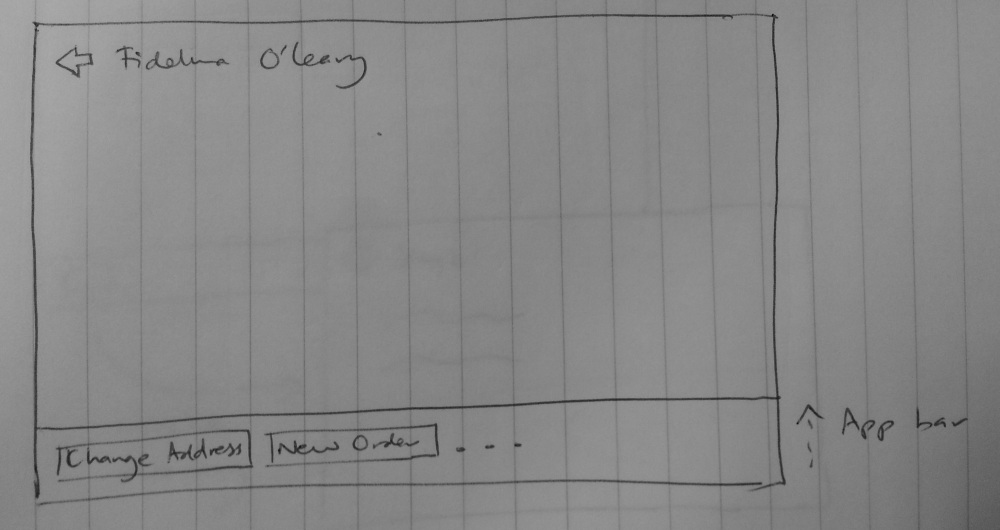 Fidelma O'Leary
Change Address
New Order
- - -
App bar